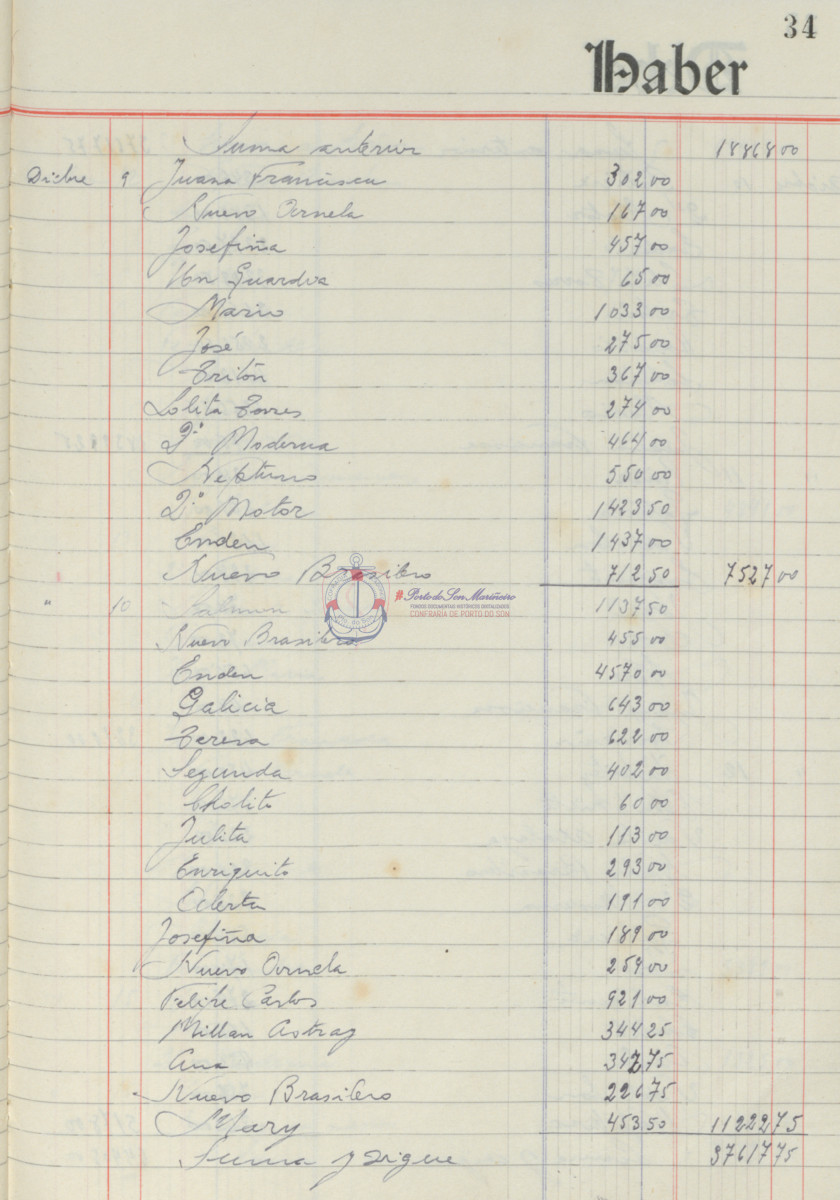 34
Haber
Suma anterior 18868 00
Dicbre 9 Juana Francisca 302 00
Nuevo Ornela 167 00
Josefiña 457 00
Vn Guardia 65 00
Mario 1033 00
José 275 00
Tritón 367 00
Lolita Torres 274 00
2ª Moderna 464 00
Neptuno 550 00
2º Motor 1423 50
Enden 1437 00
Nuevo Brasilero 712 50 7527 00
" 10 1137 50
Nuevo Brasilero 455 00
Enden 4570 00
Galicia 643 00
Teresa 622 00
Segunda 402 00
Cholito 60 00
Julita 113 00
Enriquito 293 00
Oderta 191 00
Josefiña 189 00
Nuevo Ornela 259 00
Felipe Carlos 921 00
Millan Astray 344 25
Ana 342 75
Nuevo Brasilero 226 75
Mary 453 50 11222 75
Suma y sigue 37617 75
#Porto do Son Mariñeiro
FONDOS DOCUMENTAIS HISTÓRICOS DIXITALIZADOS
CONFRARÍA DE PORTO DO SON